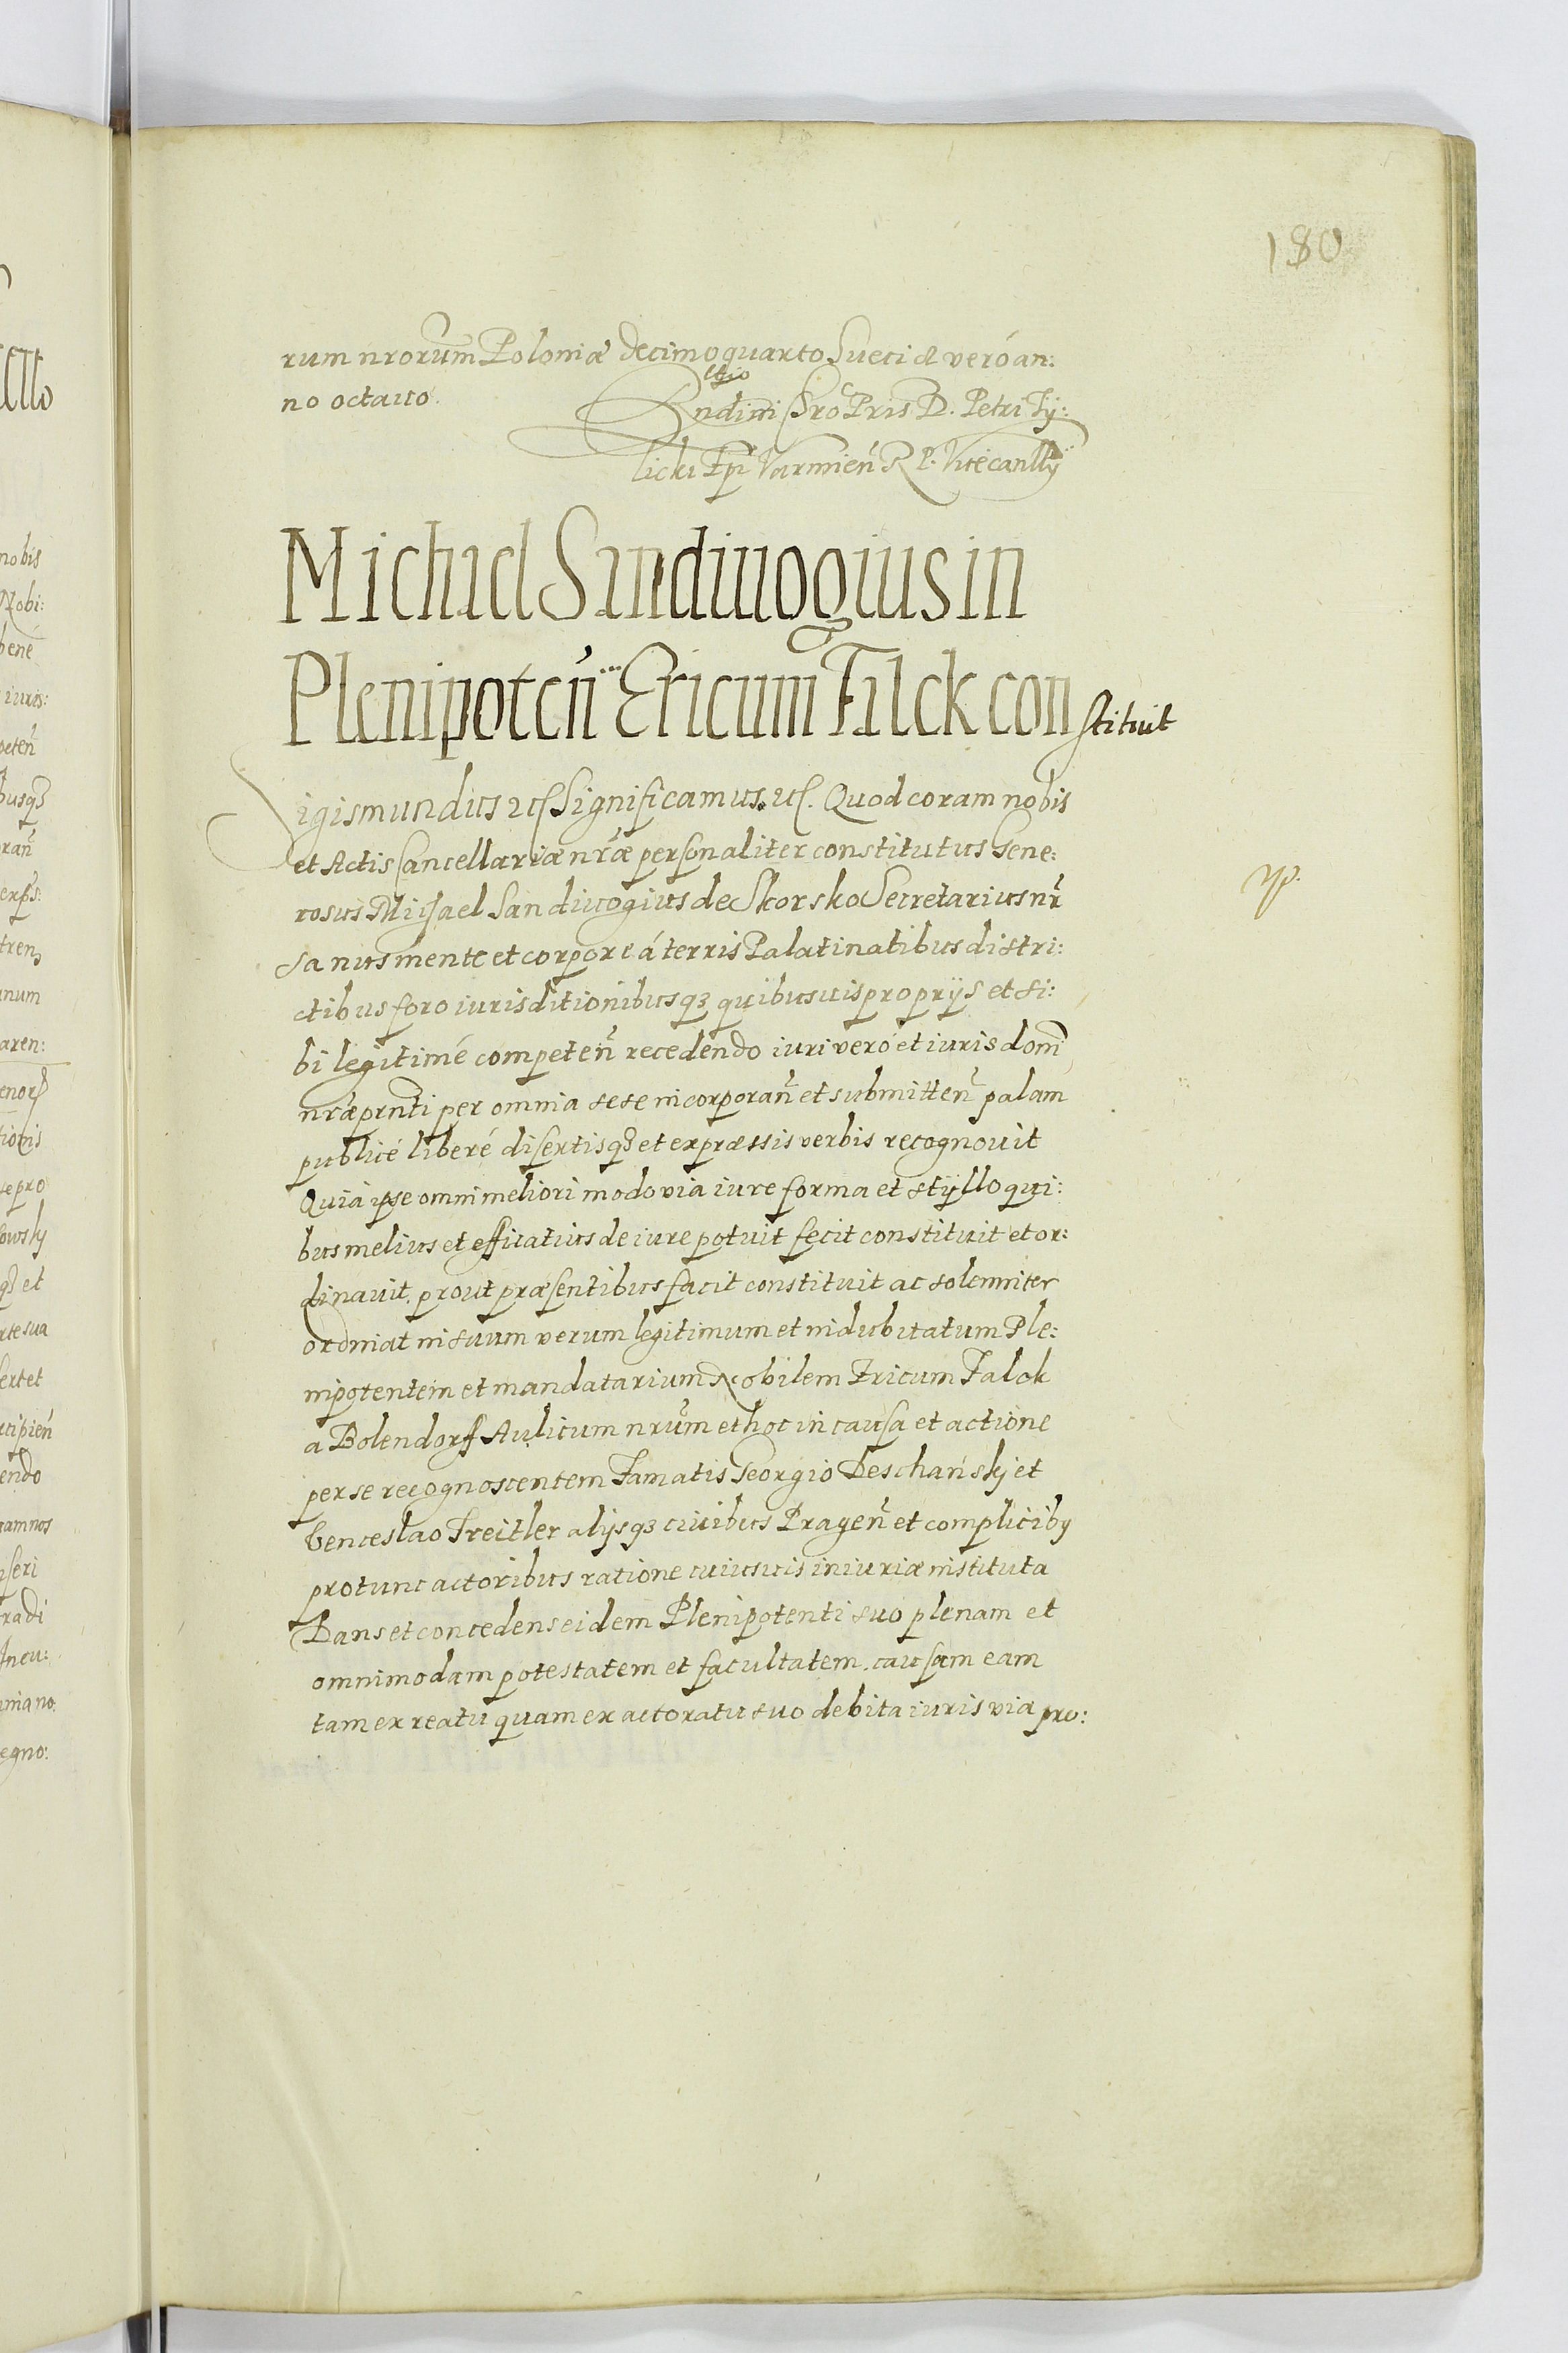 180
rum nrorum Poloniæ decimo quarto Sueciæ veró an:
no octauo.
Rela͠o
Rndissi Chro Pris D. Petri Ty:
licki Epi Varmien R. P. Vicecanlly
Michael Sandiuogius in
Plenipoten Ericum Falck constituit
Sigismundus etc Significamus. etc. Quod coram nobis
et Actis Cancellariæ nræ personaliter constitutus Gene:
rosus Michael Sandiuogius de Skorsko Secretarius nr
sanus mente et corpore á terris Palatinatibus distri:
ctibus foro iurisditionibusq3 quibusuis proprijs et si:
bi legitimé competen recedendo iuri veró et iuris dom
nræ prnti per omnia sese incorporan et submitten palam
publicé liberé disertisq3 et expræssis verbis recognouit
Quia ipse omni meliori modo via iure forma et styllo qui:
bus melius et efficatius de iure potuit fecit constituit et or:
dinauit. prout præsentibus facit constituit ac solemniter
ordinat in suum verum legitimum et indubitatum Ple:
nipotentem et mandatarium Nobilem Ericum Falck
a Bolendorf Aulicum nrum et hoc in causa et actione
per se recognoscentem Famatis Georgio Deschański et
Venceslao Treitler alijsq3 ciuibus Pragen et complicib9
pro tunc actoribus ratione cuiusuis iniuriæ instituta
Dans et concedens eidem Plenipotenti suo plenam et
omnimodam potestatem et facultatem. causam eam
tam ex reatu quam ex actoratu suo debita iuris via pro: